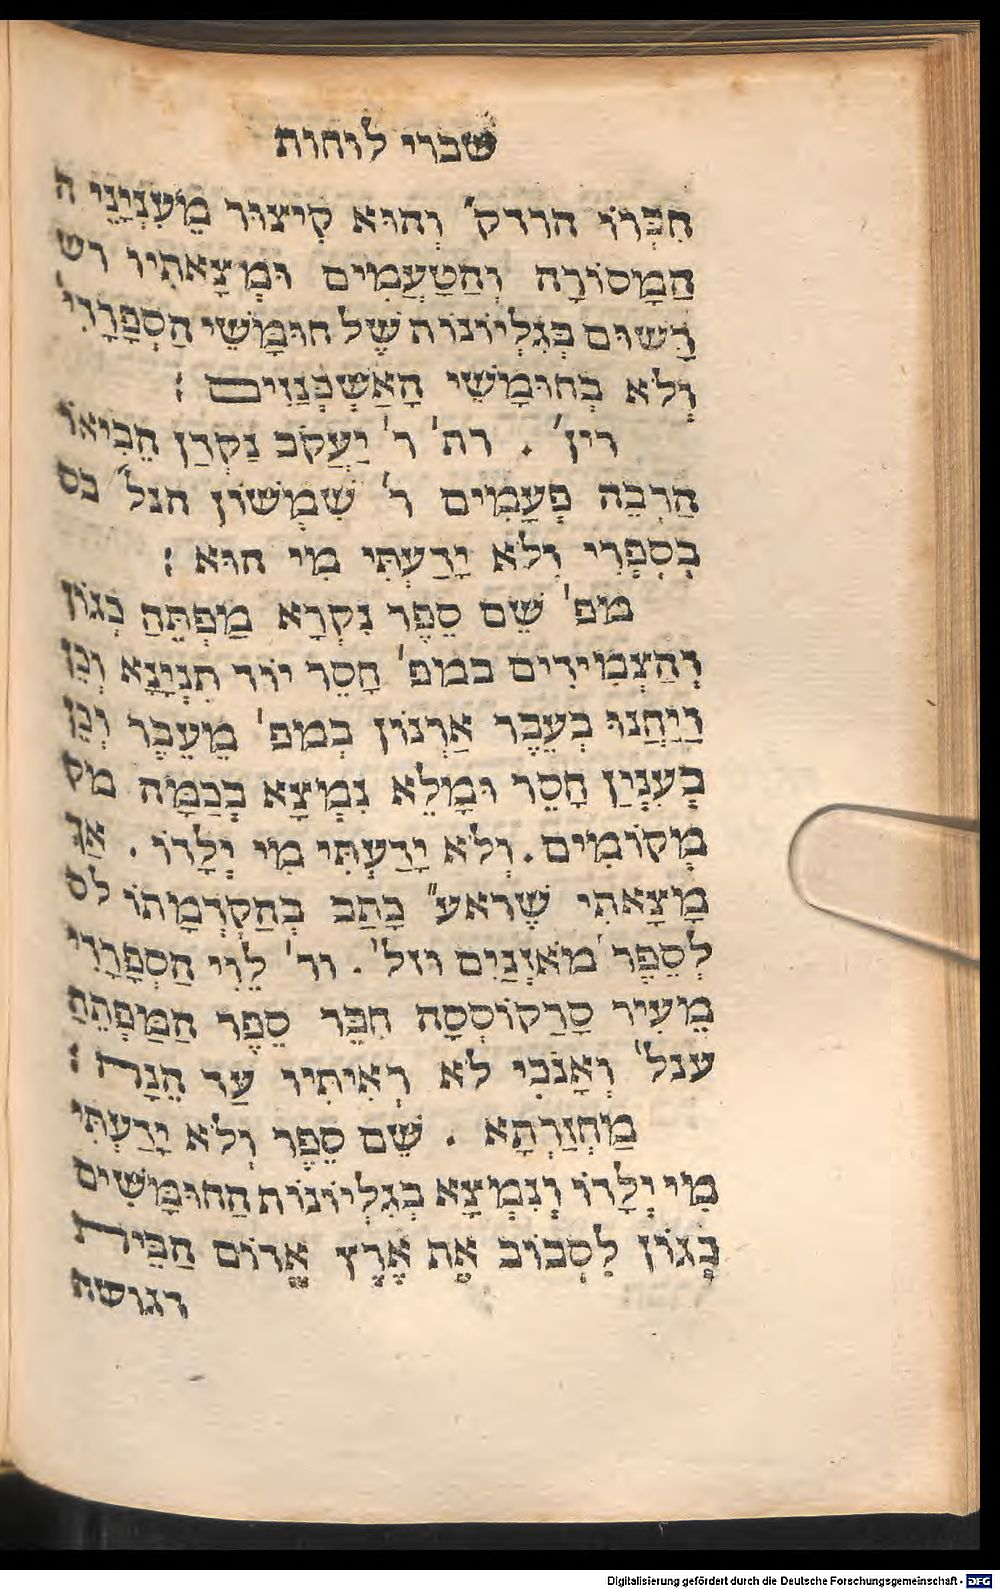 שברי לוחות
חִבְּרוֹ הרדק״ וְהוּא קִיצוּר מֵעִנְיָנֵי ה
הַמָּסוֹרָה וְהַטְעָמִים וּמְצָאתִיו רש
רָשׁוּם בְּגִלְיוֹנוֹת שֶׁל חוּמָשֵׁי הַסְפָרָדִי׳
וְלֹא בְחוּמָשֵׁי הָאַשְׁכְּנַזִים :
רין׳ . רת׳ ר׳ יַעֲקֹב נַקְדַן הֵבִיאוֹ
הַרְבֵּה פְּעָמִים ר׳ שִׁמְשׁוֹן הנל״ בס
בְּסִפְרִי וְלֹא יָדַעְתִּי מִי הוּא :
מפ׳ שֵׁם סֵפֶר נִקְרָא מַפְתֵּחַ כְּגוֹן
וְהַצְמִידִים במפ׳ חָסֵר יוֹד תִנְיָנָא וְכֵן
וַיַחֲנוּ בְּעֵבֶר אַרְנוֹן בְּמפ׳ מֵעֵבֶר וְכֵן
בְּעִנְיַן חָסֵר וּמָלֵא נִמְצָא בְּכַמָּה מק
מְקוֹמִים . וְלֹא יָדַעְתִּי מִי יְלָדוֹ . אַךְ
מָצָאתִי שֶׁראע״ כָּתַב בְּהַקְדָמָתוֹ לס
לְסֵפֶר מֹאזְנַיִם וזל׳ . ור׳ לֵוִי הַסְפָרָדִי
מֵעִיר סָרַקוֹסְטָה חִבֵּר סֵפֶר הַמַפְתֵּחַ
עכל׳ וְאָנֹכִי לֹא רְאִיתִיו עַד הֵנָה :
מַחְזַרְתָּא . שֵׁם סֵפֶר וְלֹא יָדַעְתִּי
מִי יְלָדוֹ וְנִמְצָא בְּגִלְיוֹנוֹת הַחוּמָשִׁים
כְּגוֹן לִסְבּוֹב אֶת אֶרֶץ אֱדוֹם הַבֵּית
דגושה
Digitalisierung gefördert durch die Deutsche Forschungsgemeinschaft - DFG